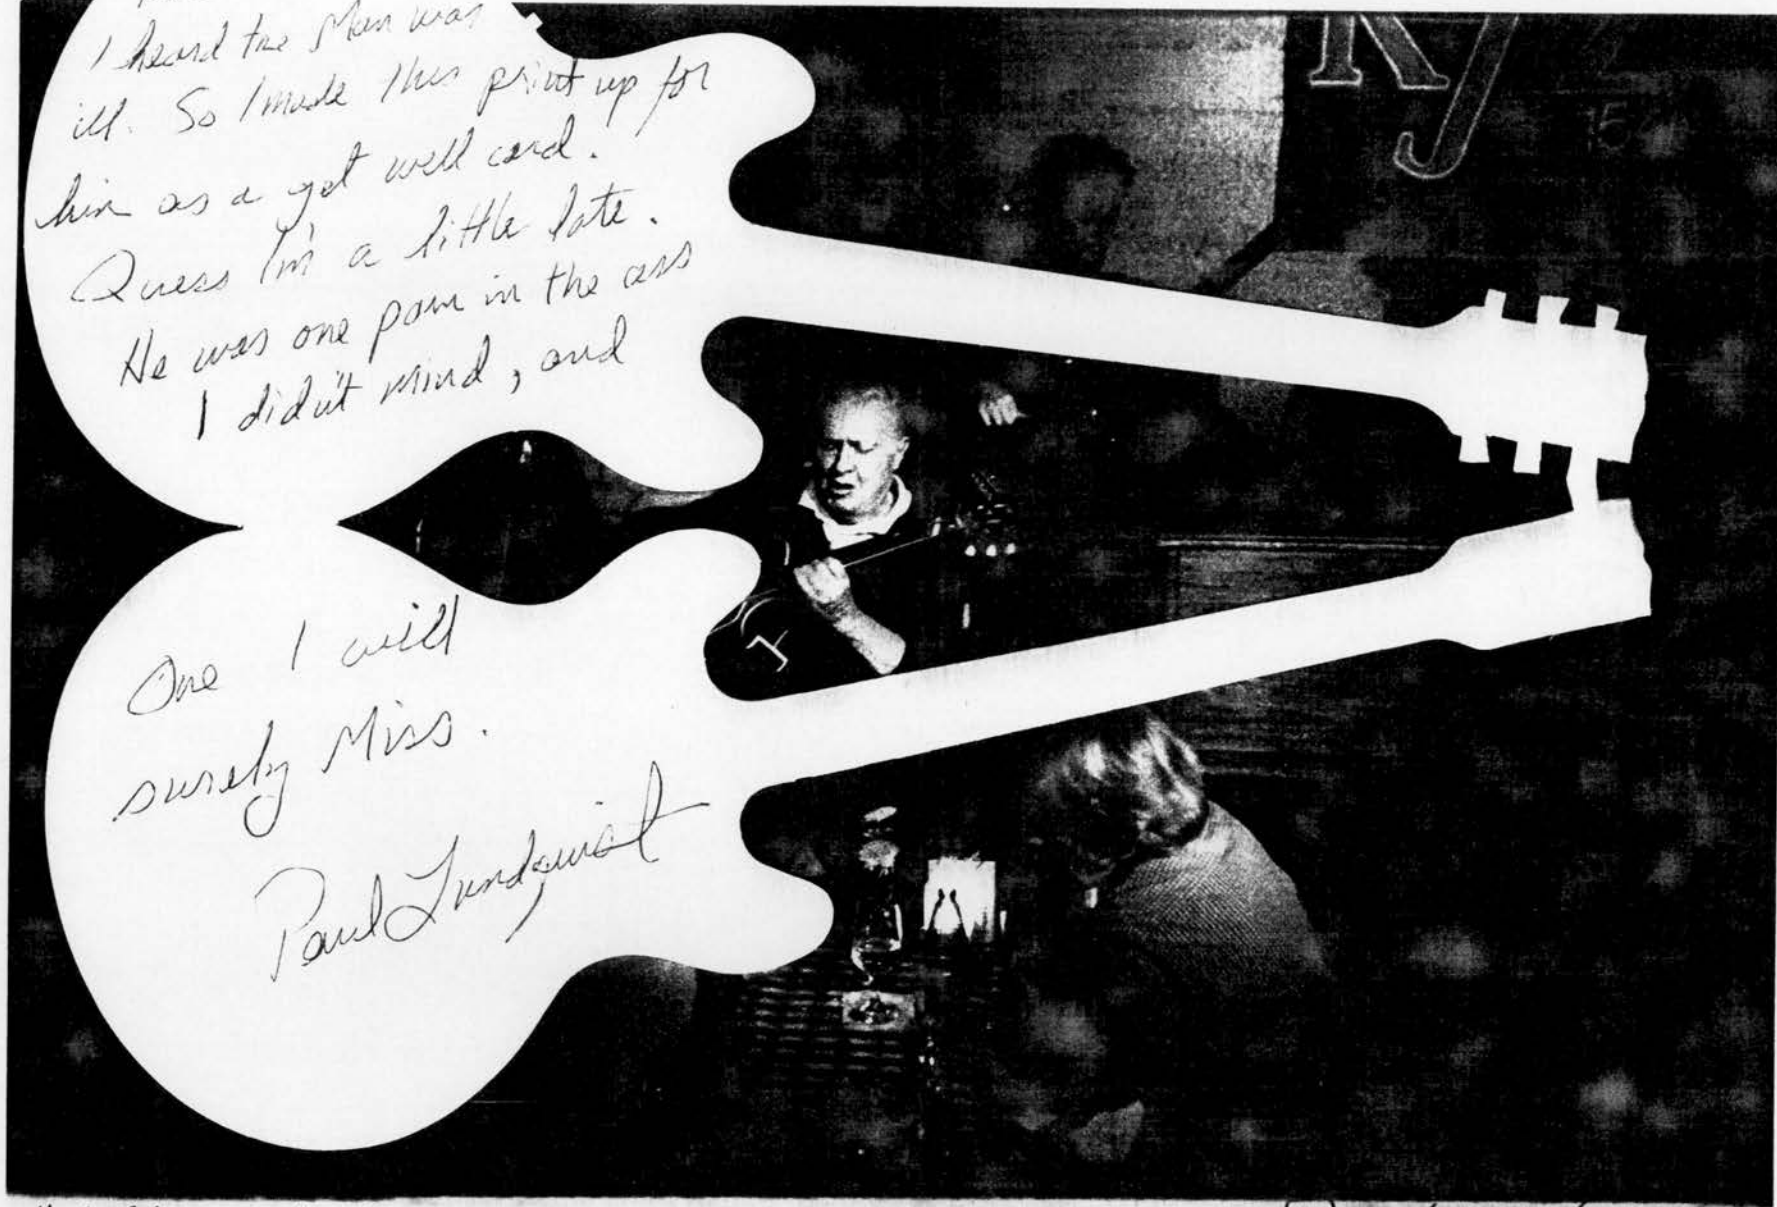 I heard the Man was
ill. So I made this print up for
him as a get well card.
Guess I'm a little late.
He was one pain in the ass
I didn't mind, and
One I will
surely Miss.
Paul Lundquist
RJ
15